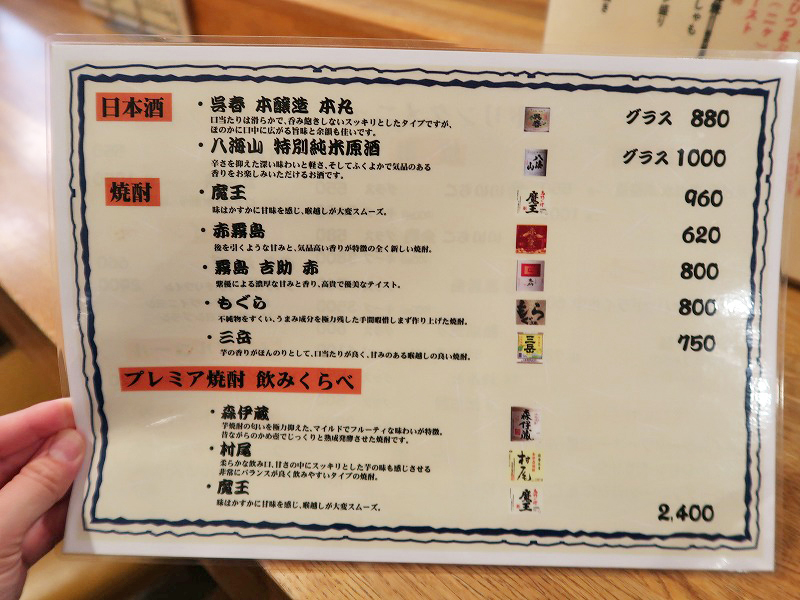 日本酒
・呉春 本醸造 本丸
グラス 880
口当たりは滑らかで、呑み飽きしないスッキリとしたタイプですが、
ほのかに口中に広がる旨味と余韻も佳いです。
・八海山 特別純米原酒
グラス 1000
辛さを抑えた深い味わいと軽さ、そしてふくよかで気品のある
香りをお楽しみいただけるお酒です。
焼酎
・魔王
960
味はかすかに甘味を感じ、喉越しが大変スムーズ。
・赤霧島
620
後を引くような甘みと、気品高い香りが特徴の全く新しい焼酎。
・霧島 吉助 赤
800
紫優による濃厚な甘みと香り、高貴で優美なテイスト。
・もぐら
800
不純物をすくい、うまみ成分を極力残した手間暇惜しまず作り上げた焼酎。
・三岳
750
芋の香りがほんのりとして、口当たりが良く、甘みのある喉越しの良い焼酎。
プレミア焼酎 飲みくらべ
・森伊蔵
芋焼酎の匂いを極力抑えた、マイルドでフルーティな味わいが特徴。
昔ながらのかめ壺でじっくりと熟成発酵させた焼酎です。
・村尾
柔らかな飲み口、甘さの中にスッキリとした芋の味も感じさせる
非常にバランスが良く飲みやすいタイプの焼酎。
・魔王
味はかすかに甘味を感じ、喉越しが大変スムーズ。
2,400
呉春
八海山
魔王
三岳
森伊蔵
村尾
魔王